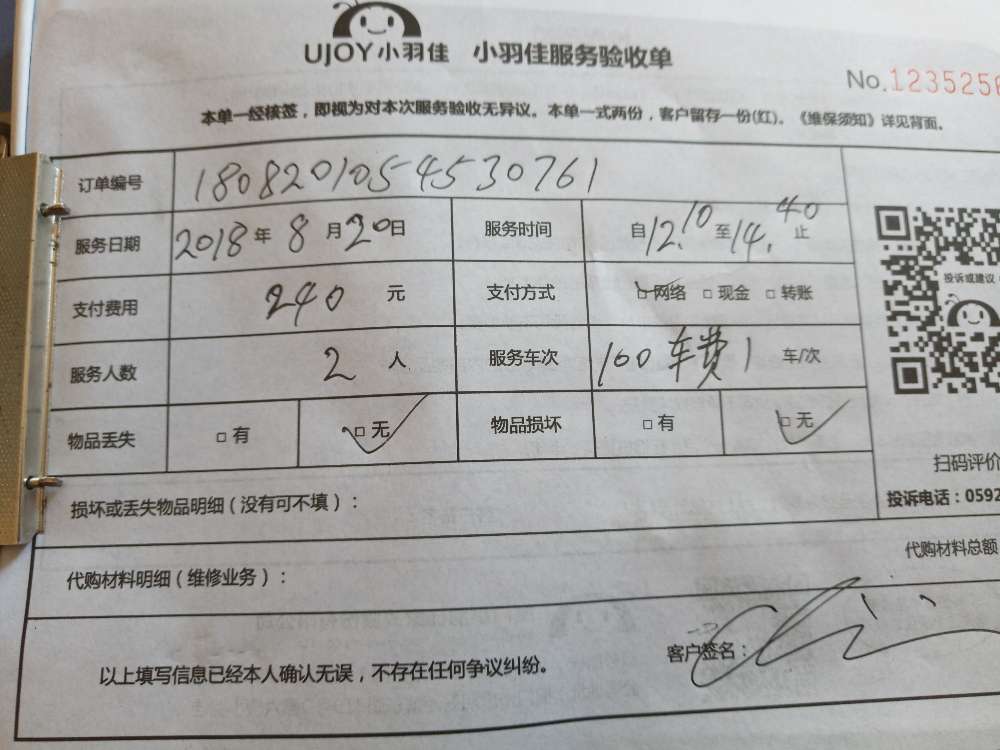 UJOY小羽佳 小羽佳服务验收单
No.1235256
本单一经核签，即视为对本次服务验收无异议。本单一式两份，客户留存一份(红)。《维保须知》详见背面。
订单编号 180820105454530761
服务日期 2018年 8 月20日 服务时间 自12.10至14.40止
支付费用 240 元 支付方式 □网络 □现金 □转账
投诉或建议
服务人数 2 人 服务车次 100车费1 车/次
物品丢失 □有 □无 物品损坏 □有 □无
扫码评价
损坏或丢失物品明细（没有可不填）：
投诉电话：0592
代购材料总额
代购材料明细（维修业务）：
以上填写信息已经本人确认无误，不存在任何争议纠纷。
客户签名：